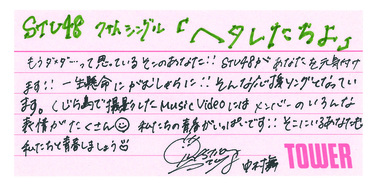 STU48 7thシングル「ヘタレたちよ」
もうダメダ…って思っているそこのあなた!! STU48があなたを元気付け
ます!! 一生懸命にがむしゃらに!! そんな応援ソングとなってい
ます。くじら島で撮影をしたMusic Videoにはメンバーのいろんな
表情がたくさん 私たちの青春がいっぱいです!! そこにいるあなたも
私たちと青春しましょう
TOWER